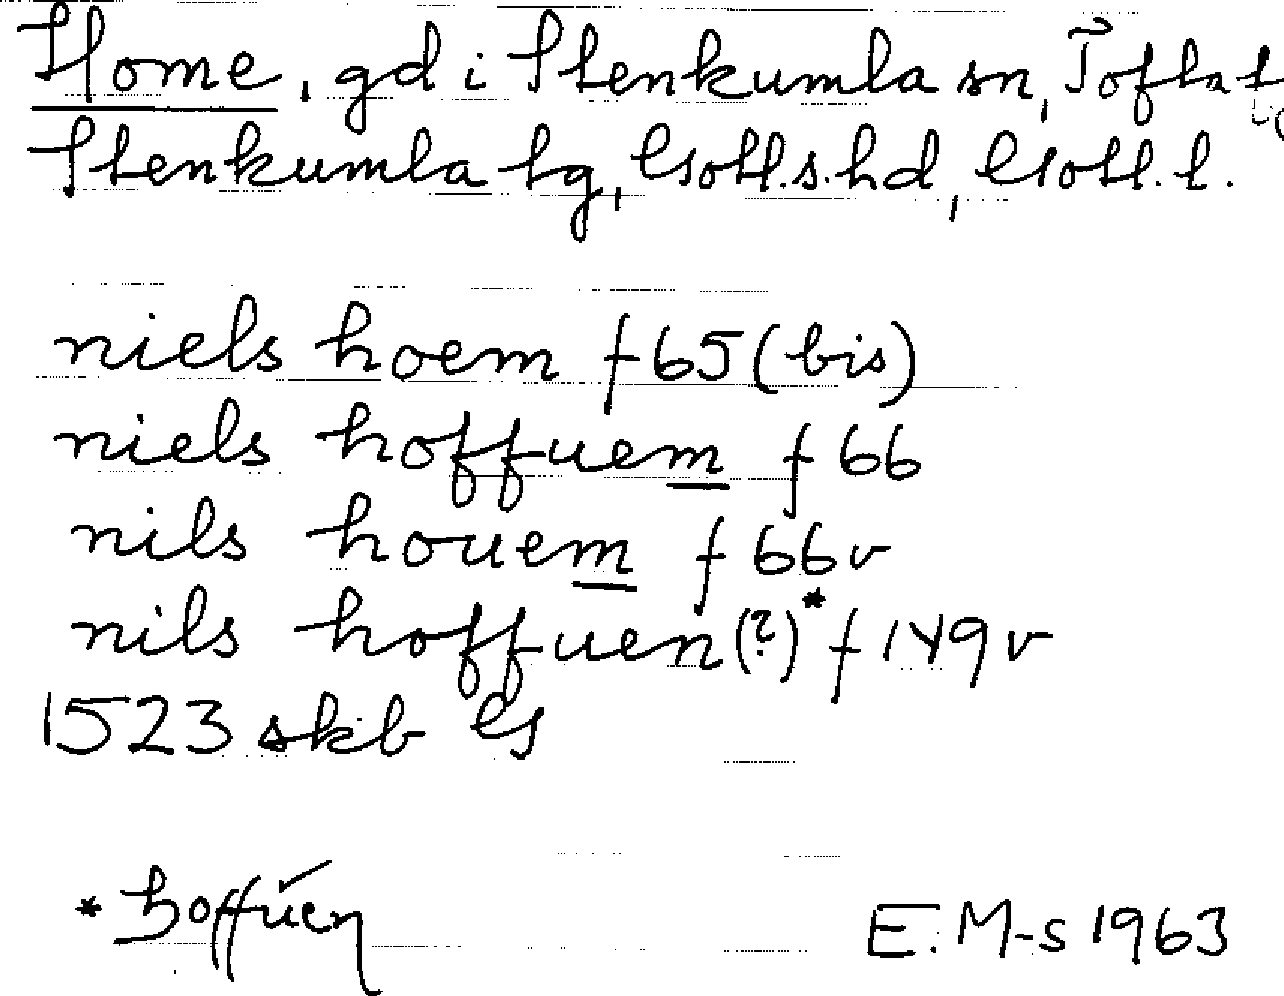 Home, gd i Stenkumla sn, Tofta t
Stenkumla tg, Gotl.s.hd, Gotl.l.
niels hoem f 65 (bis)
niels hoffuem f 66
nils houem f 66v
nils hoffuen(?)* f 149v
1523 skb G
* hoffuen
E.M-s 1963